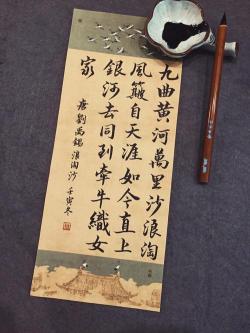 九曲黃河萬里沙浪淘
風簸自天涯如今直上
銀河去同到牽牛織女
家
唐劉禹錫浪淘沙壬寅冬